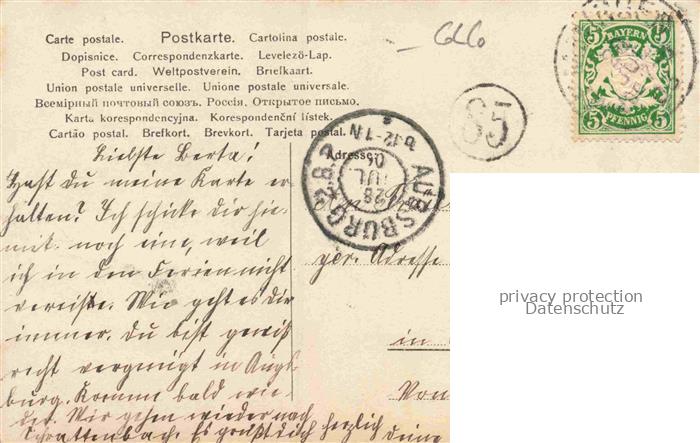 Carte postale. Postkarte. Cartolina postale.
Dopisnice. Correspondenzkarte. Levelező-Lap.
Post card. Weltpostverein. Briefkaart.
Union postale universelle. Unione postale universale.
Всемірный почтовый союзъ. Россія. Открытое письмо.
Karta korespondencyjna. Korespondenční lístek.
Cartão postal. Brefkort. Brevkort. Tarjeta postal.
BAYERN
5 5
5 PFENNIG 5
85
AUGSBURG 2
28 JUL 06
12-1 N
Adresse:
Liebste Berta!
Hast du meine Karte er
halten? Ich schicke dir hie-
mit noch eine, weil
ich in den Ferien nicht
verreiste. Wie geht es Dir
immer. Du bist gewiß
recht vergnügt in Augs
burg. Komm bald wie-
der. Wir gehen wieder nach
Schrattenbach. Es grüßt dich herzlich deine
An
per. Adresse
in
Von
privacy protection
Datenschutz